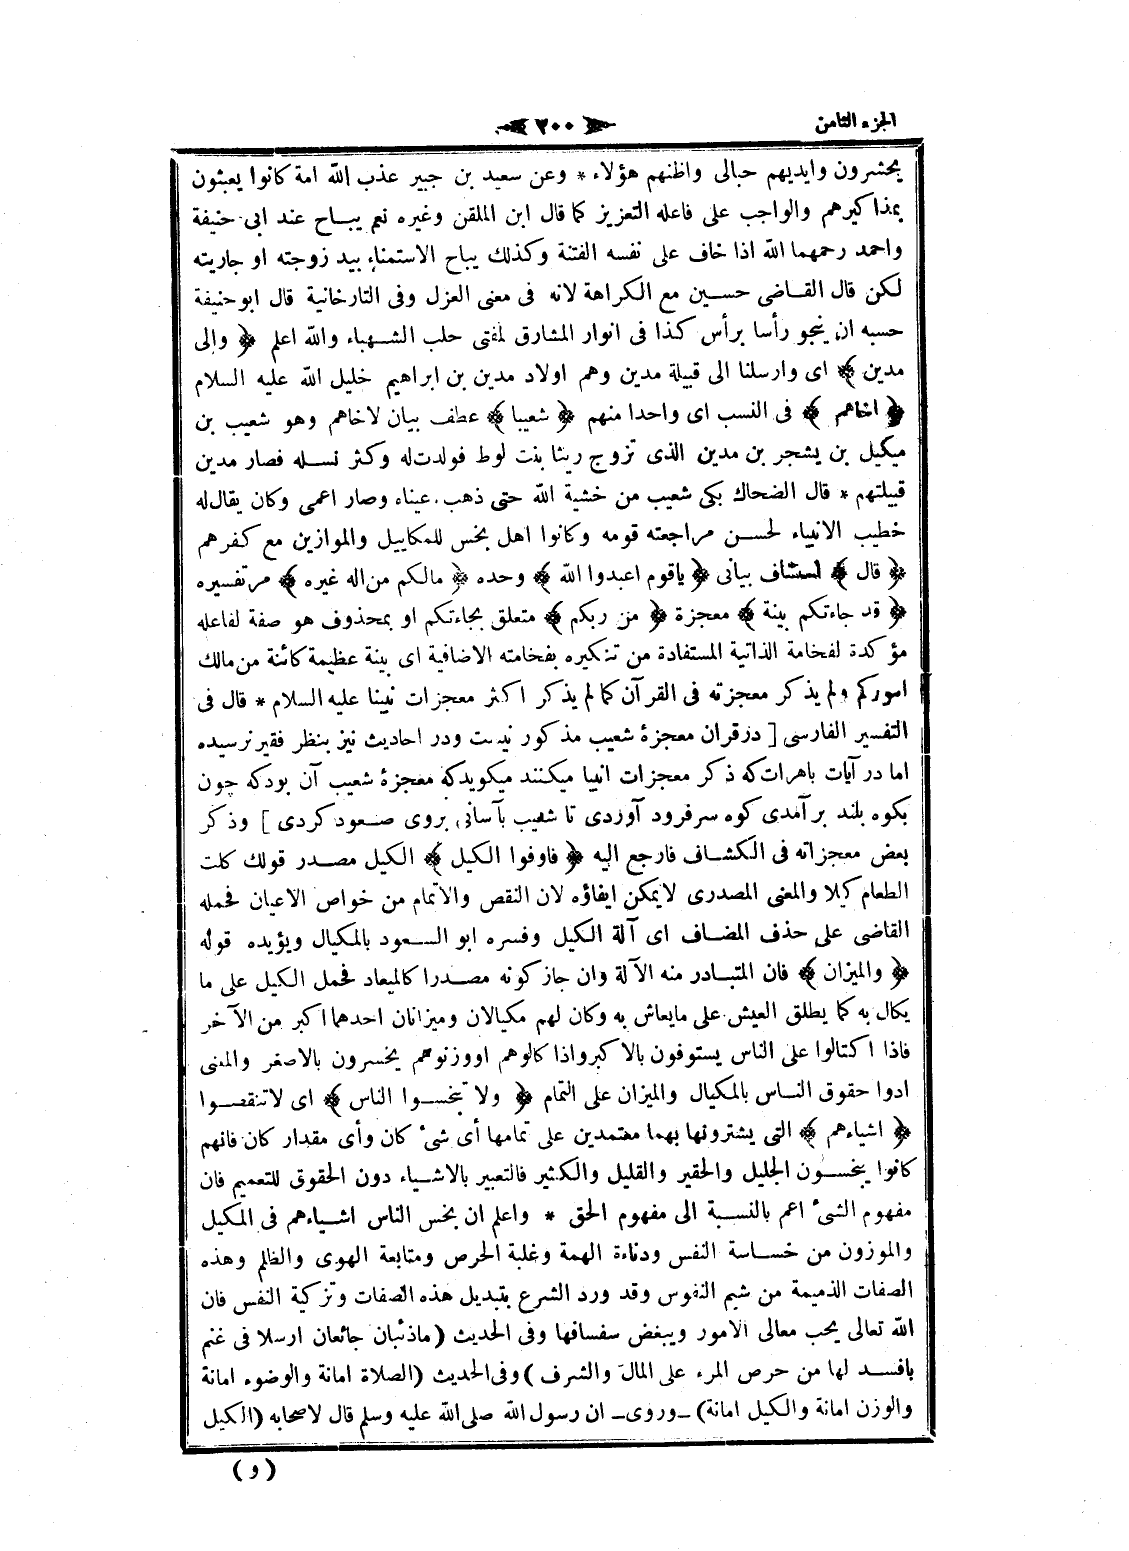 الجزء الثامن
٢٠٠
يحشرون وايديهم حبالى واظنهم هؤلاء * وعن سعيد بن جبير عذب الله امة كانوا يعبثون
بمذاكيرهم والواجب على فاعله التعزيز كما قال ابن الملقن وغيره نعم يباح عند ابى حنيفة
واحمد رحمهما الله اذا خاف على نفسه الفتنة وكذلك يباح الاستمناء بيد زوجته او جاريته
لكن قال القاضى حسين مع الكراهة لانه فى معنى العزل وفى التارخانية قال ابو حنيفة
حسبه ان ينجو رأسا برأس كذا فى انوار المشارق لمفتى حلب الشهباء والله اعلم ﴿ والى
مدين ﴾ اى وارسلنا الى قبيلة مدين وهم اولاد مدين بن ابراهيم خليل الله عليه السلام
﴿ اخاهم ﴾ فى النسب اى واحدا منهم ﴿ شعيبا ﴾ عطف بيان لاخاهم وهو شعيب بن
ميكيل بن يشجر بن مدين الذى تزوج ريثا بنت لوط فولدت له وكثر نسله فصار مدين
قبيلتهم * قال الضحاك بكى شعيب من خشية الله حتى ذهب عيناه وصار اعمى وكان يقال له
خطيب الانبياء لحسن مراجعته قومه وكانوا اهل بخس للمكاييل والموازين مع كفرهم
﴿ قال ﴾ استئناف بيانى ﴿ ياقوم اعبدوا الله ﴾ وحده ﴿ مالكم من اله غيره ﴾ مر تفسيره
﴿ قد جاءتكم بينة ﴾ معجزة ﴿ من ربكم ﴾ متعلق بجاءتكم او بمحذوف هو صفة لفاعله
مؤكدة لفخامة الذاتية المستفادة من تنكيره بفخامته الاضافية اى بينة عظيمة كائنة من مالك
اموركم ولم يذكر معجزته فى القرآن كما لم يذكر اكثر معجزات نبينا عليه السلام * قال فى
التفسير الفارسى [ درقران معجزۀ شعيب مذكور نيست ودر احاديث نيز بنظر فقير نرسيده
اما در آيات باهرات كه ذكر معجزات انبيا ميكنند ميكويدكه معجزۀ شعيب آن بودكه چون
بكوه بلند برآمدى كوه سرفرود آوردى تا شعيب بآسانى بروى صعود كردى ] وذكر
بعض معجزاته فى الكشاف فارجع اليه ﴿ فاوفوا الكيل ﴾ الكيل مصدر قولك كلت
الطعام كيلا والمعنى المصدرى لايمكن ايفاؤه لان النقص والاتمام من خواص الاعيان فحمله
القاضى على حذف المضاف اى آلة الكيل وفسره ابو السعود بالمكيال ويؤيده قوله
﴿ والميزان ﴾ فان المتبادر منه الآلة وان جاز كونه مصدرا كالميعاد فحمل الكيل على ما
يكال به كما يطلق العيش على مايعاش به وكان لهم مكيالان وميزانان احدهما اكبر من الآخر
فاذا اكتالوا على الناس يستوفون بالاكبر واذا كالوهم اووزنوهم يخسرون بالاصغر والمعنى
ادوا حقوق الناس بالمكيال والميزان على التمام ﴿ ولا تبخسوا الناس ﴾ اى لاتنقصوا
﴿ اشياءهم ﴾ التى يشترونها بهما معتمدين على تمامها أى شئ كان وأى مقدار كان فانهم
كانوا يبخسون الجليل والحقير والقليل والكثير فالتعبير بالاشياء دون الحقوق للتعميم فان
مفهوم الشئ اعم بالنسبة الى مفهوم الحق * واعلم ان بخس الناس اشياءهم فى المكيل
والموزون من خساسة النفس ودناءة الهمة وغلبة الحرص ومتابعة الهوى والظلم وهذه
الصفات الذميمة من شيم النفوس وقد ورد الشرع بتبديل هذه الصفات وتزكية النفس فان
الله تعالى يحب معالى الامور ويبغض سفسافها وفى الحديث (ماذئبان جائعان ارسلا فى غنم
بافسد لها من حرص المرء على المال والشرف) وفى الحديث (الصلاة امانة والوضوء امانة
والوزن امانة والكيل امانة) -وروى- ان رسول الله صلى الله عليه وسلم قال لاصحابه (الكيل
(و)